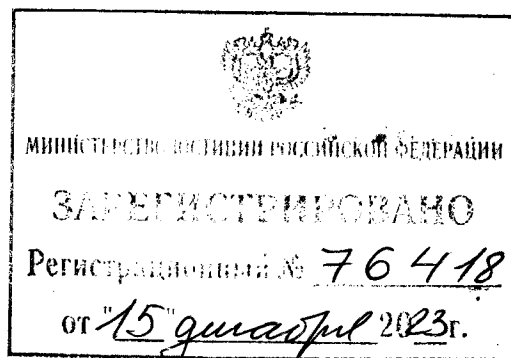 МИНИСТЕРСТВО ЮСТИЦИИ РОССИЙСКОЙ ФЕДЕРАЦИИ
ЗАРЕГИСТРИРОВАНО
Регистрационный № 76418
от "15" декабря 2023г.